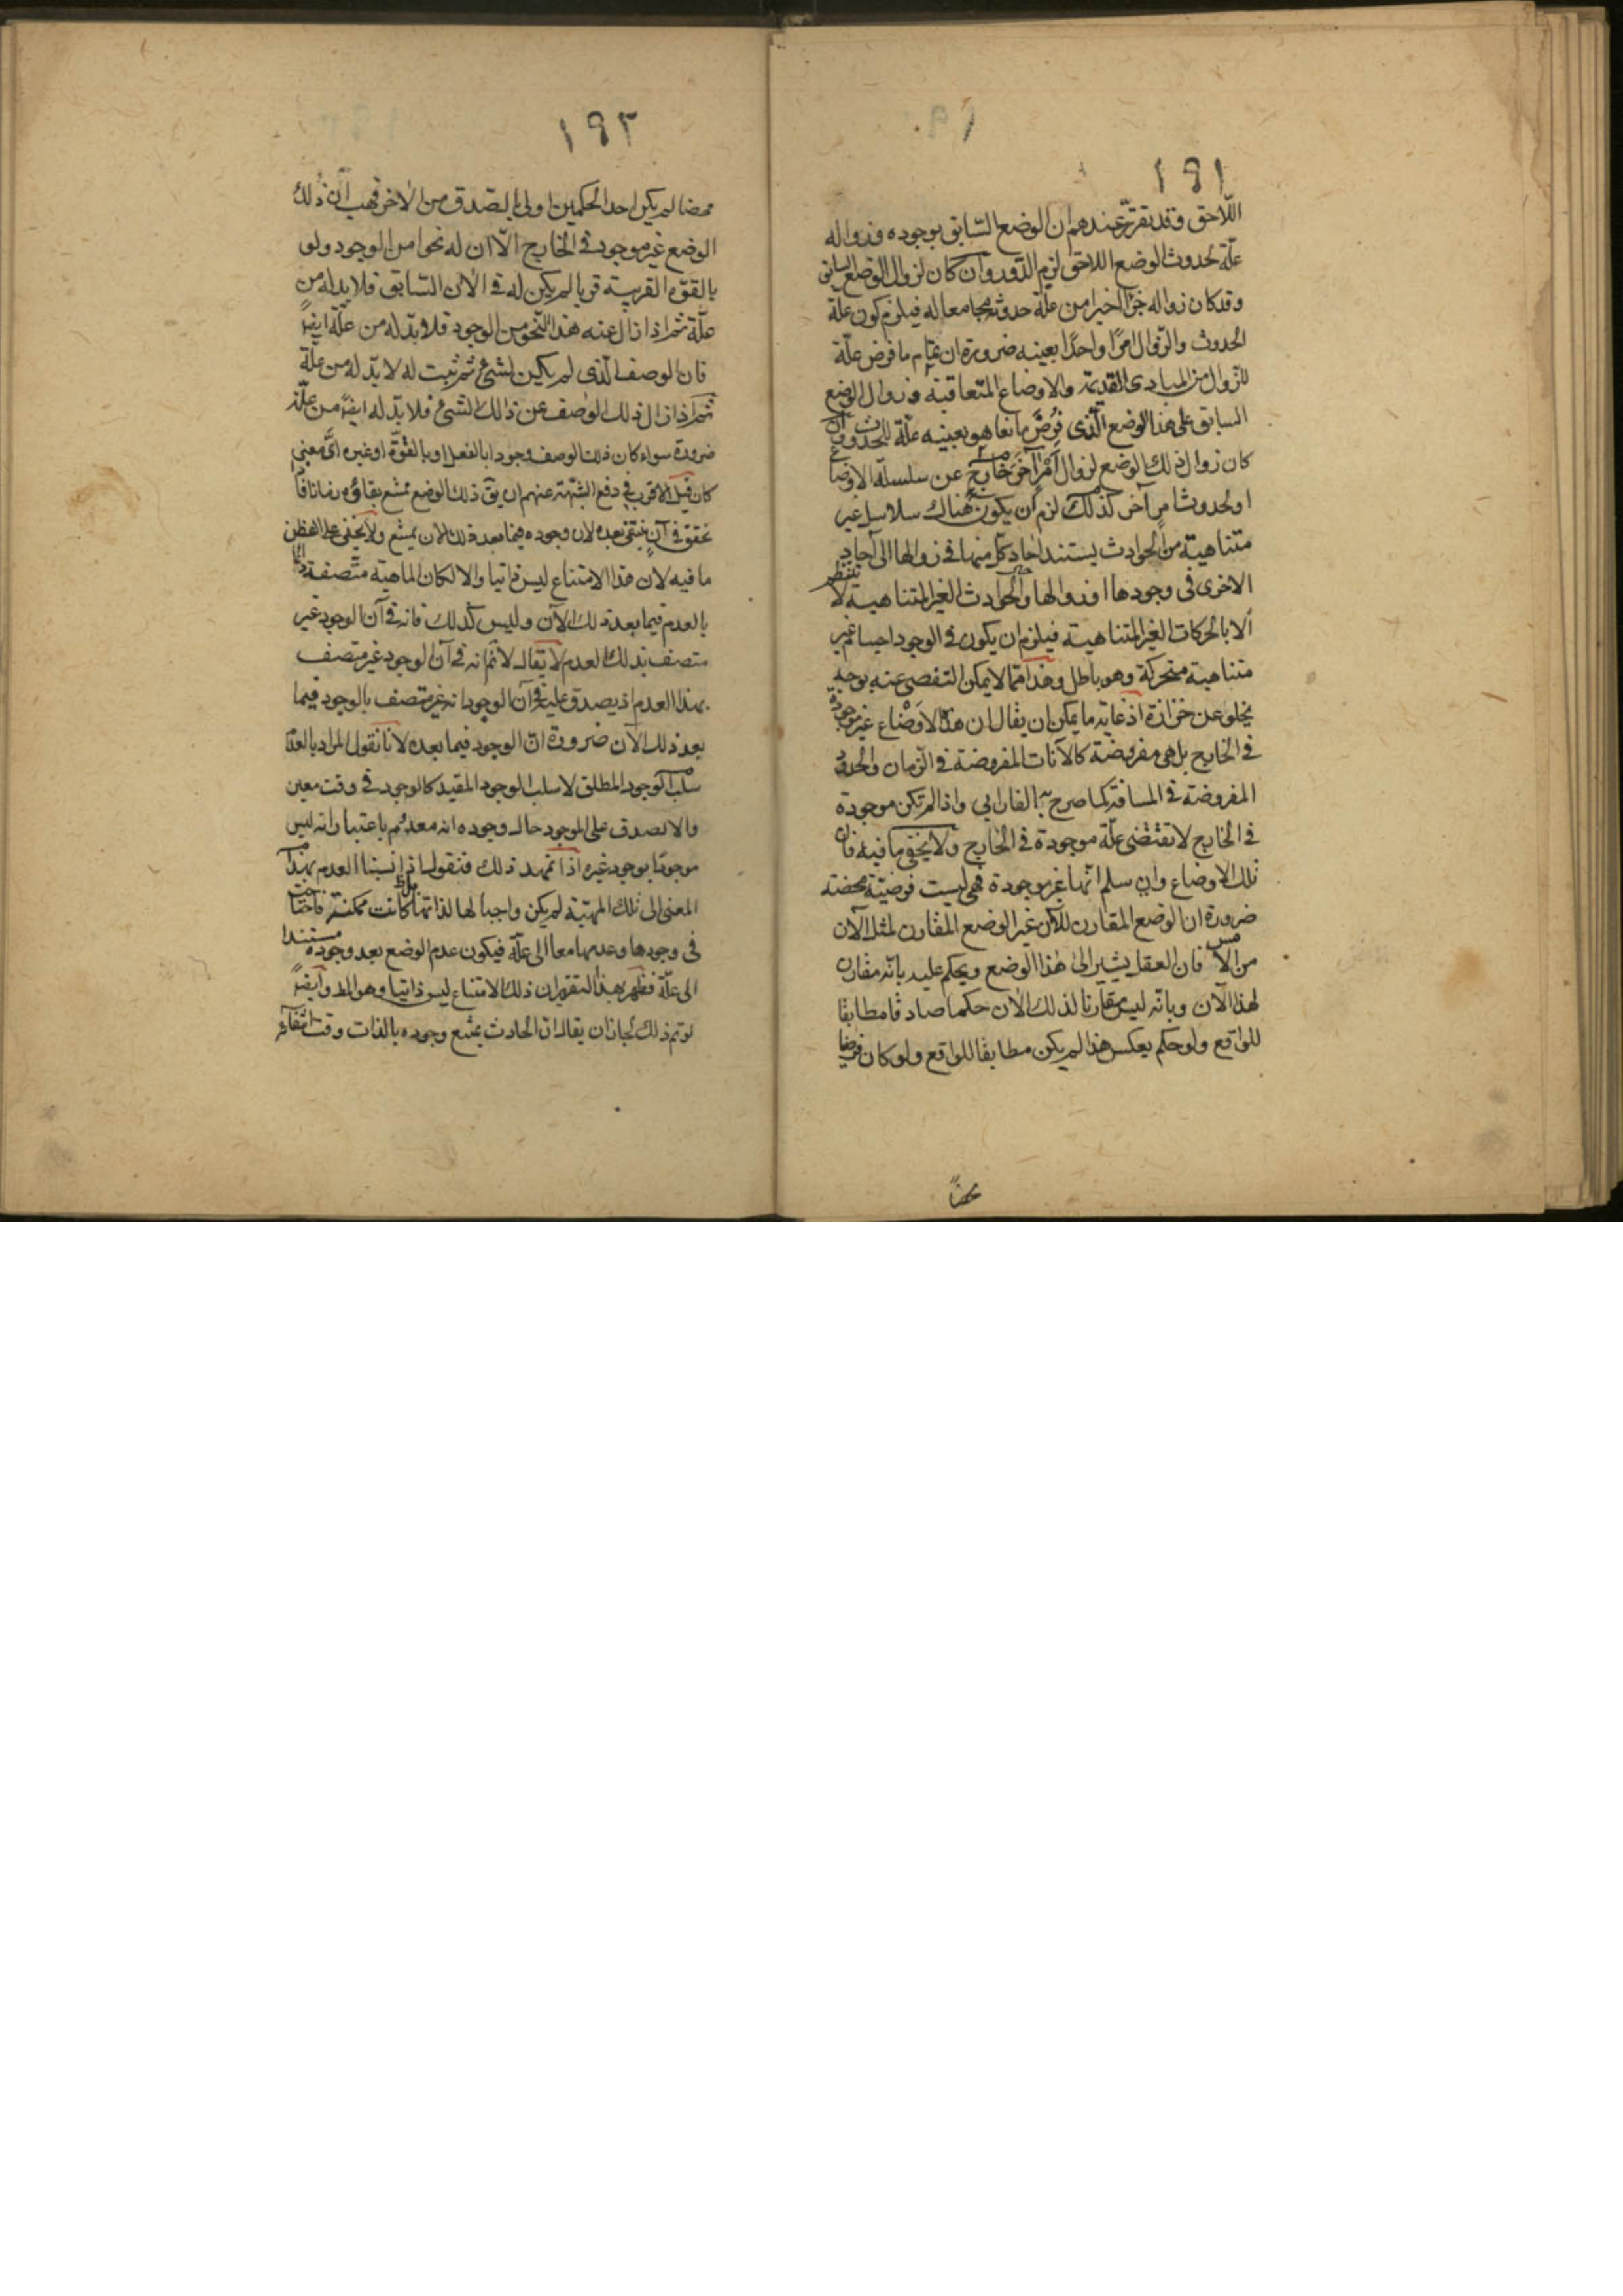 ١٩١
اللّاحق وقد تقرّر عندهم ان الوضع السّابق بوجوده وزواله
علّة لحدوث الوضع اللاحق لزم الدّور وان كان لزوال الوضع السابق
وقد كان زواله جزأ اخيرا من علّة حدوثه مجامعا له فيلزم كون علّة
الحدوث والزّوال امرًا واحدًا بعينه ضرورة ان تمام ما فرض علّة
للزوال من المبادى القديمة والاوضاع المتعاقبة وزوال الوضع
السابق على هذا الوضع الّذى فرض مانعا هو بعينه علّة للحدوث وان
كان زوال ذلك الوضع لزوال أمْرٍ آخَر خارج عن سلسلة الاوضاع
او لحدوث امر آخر كذلك لزم ان يكون هناك سلاسل غير
متناهية من الحوادث يستند احاد كلّ منها فى زوالها الى آحاد
الاخرى فى وجودها او زوالها والحوادث الغير المتناهية لا تنتظم
الا بالحركات الغير المتناهية فيلزم ان يكون فى الوجود اجسام غير
متناهية متحركة وهو باطل وهذا مما لا يمكن التفصى عنه بوجه
يخلو عن حزازة اذ غاية ما يمكن ان يقال ان هذه الاوضاع غير موجودة
فى الخارج بل هى مفروضة كالآنات المفروضة فى الزمان والحدود
المفروضة فى المسافة كما صرح به الفارابي واذا لم تكن موجودة
فى الخارج لا تقتضى علّة موجودة فى الخارج ولا يخفى ما فيه فان
تلك الاوضاع وان سلم انّها غير موجودة فهى ليست فرضيّة محضة
ضرورة ان الوضع المقارن للآن غير الوضع المقارن لمثل الآن
من الامس فان العقل يشير الى هذا الوضع ويحكم عليه بانّه مقارن
لهذا الآن وبانّه ليس مقارنا لذلك الآن حكما صادقا مطابقا
للواقع ولو حكم بعكس هذا لم يكن مطابقا للواقع ولو كان فرضيا
محضا
١٩٢
محضا لم يكن احد الحكمين اولى بالصدق من الاخر فهب انّ ذلك
الوضع غير موجود فى الخارج الّا ان له نحوا من الوجود ولو
بالقوّة القريبة قربا لم يكن له فى الآن السّابق فلا بد له من
علّة ثم اذا زال عنه هذا النّحو من الوجود فلا بدّ له من علّة ايضًا
فان الوصف الّذى لم يكن لشئ ثم ثبت له لا بدّ له من علّة
ثم اذا زال ذلك الوصف عن ذالك الشئ فلا بدّ له ايضًا من علّة
ضرورة سواء كان ذلك الوصف وجودا بالفعل او بالقوّة او غيره اىّ معنى
كان قيل الاقرب فى دفع الشبهة عنهم ان يق ذلك الوضع ممتنع بقاؤه زمانا فاذا
تحقق فى آن ينتفى بعده لان وجوده فيما بعد ذلك الآن يمتنع ولا يخفى على الفطن
ما فيه لان هذا الامتناع ليس ذاتيا والا لكان الماهية متّصفة دائما
بالعدم فيما بعد ذلك الآن وليس كذلك فانه فى آن الوجود غير
متصف بذلك العدم لا يقال لا نم انه فى آن الوجود غير متصف
بهذا العدم اذ يصدق عليه فى آن الوجود انه غير متصف بالوجود فيما
بعد ذلك الآن ضرورة انّ الوجود فيما بعده لانا نقول المراد بالعدم
سلب الوجود المطلق لا سلب الوجود المقيد كالوجود فى وقت معين
والا لصدق على الموجود حال وجوده انه معدوم باعتبار انه ليس
موجودًا بوجود غيره اذا تمهد ذلك فنقول اذا نسبنا العدم بهذا
المعنى الى تلك المهيّة لم يكن واجبا لها لذاتها بل كانت ممكنة فاحتاجت
فى وجودها وعدمها معا الى علّة فيكون عدم الوضع بعد وجوده مستندا
الى علّة فظهر بهذا التقرير ان ذلك الامتناع ليس ذاتيا وهو المط وايضًا
لو تم ذلك لجاز ان يقال ان الحادث يمتنع وجوده بالذات وقت انتفائه